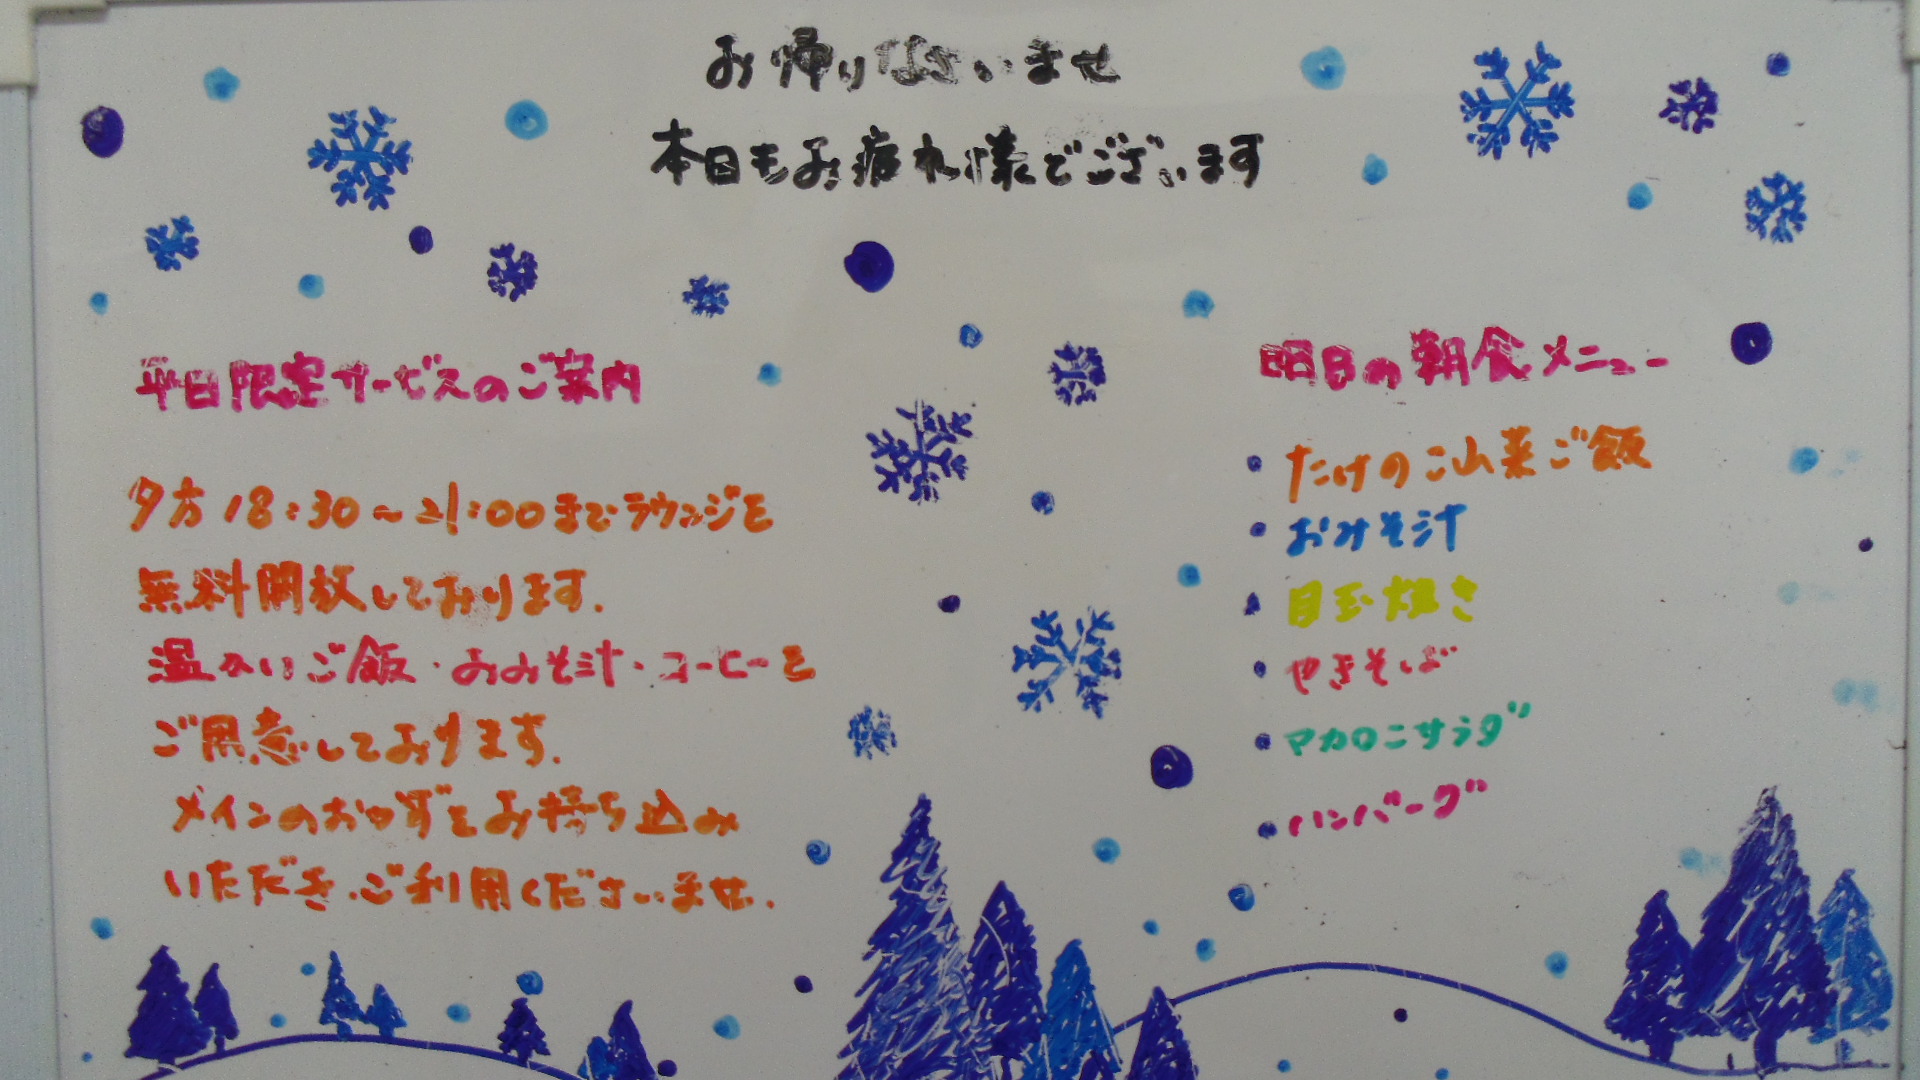 お帰りなさいませ
本日もお疲れ様でございます
平日限定サービスのご案内
夕方18:30～21:00までラウンジを
無料開放しております.
温かいご飯・おみそ汁・コーヒーを
ご用意しております.
メインのおかずをお持ち込み
いただき、ご利用くださいませ.
明日の朝食メニュー
・たけのこ山菜ご飯
・おみそ汁
・目玉焼き
・やきそば
・マカロニサラダ
・ハンバーグ